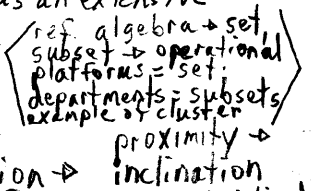 as an extensive
ref. algebra → set,
subset → operational
platforms = set;
departments = subsets
example of cluster
proximity →
ion → inclination